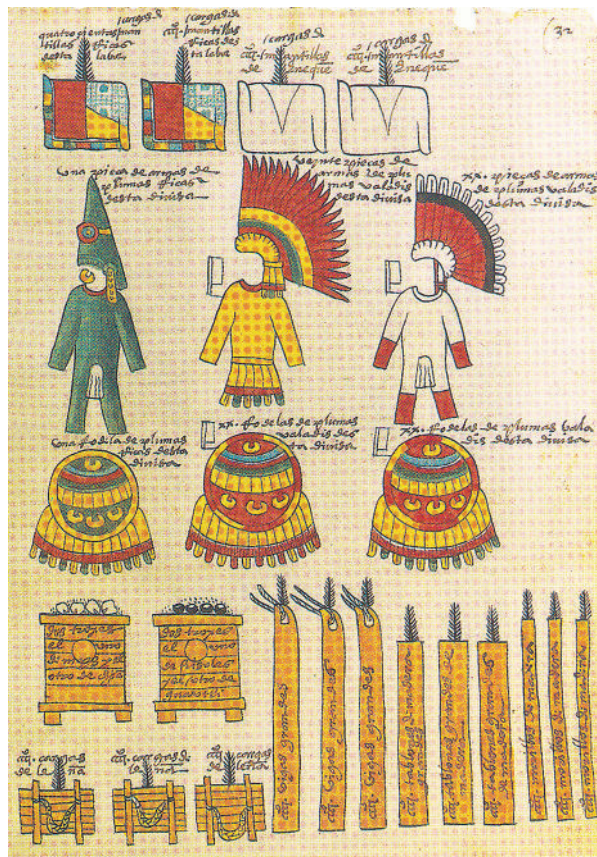 32
cargas de
quatroçientas man
tillas rricas
desta labor
cargas de
mantillas
rricas des
ta labor
cargas de
mantillas
de eneque
cargas de
mantillas
de eneque
Una pieça de armas de
plumas rricas
desta divisa
veynte pieças de
armas de plu
mas valadis
desta divisa
xx. pieças de armas
de plumas valadis
desta divisa
Una rodela de plumas
rricas desta
divisa
xx. rodelas de plumas
valadis des
ta divisa
xx. rodelas de plumas vala
dis desta divisa
dos troxes
el uno
de maiz y el
otro de
dos troxes
el uno
de frisoles
y el otro de
guautli
cargas
de leña
cargas
de leña
cargas
de leña
vigas grandes
vigas grandes
vigas grandes
de madera
grandes de
grandes
morillos de madera
morillos de madera
morillos de madera